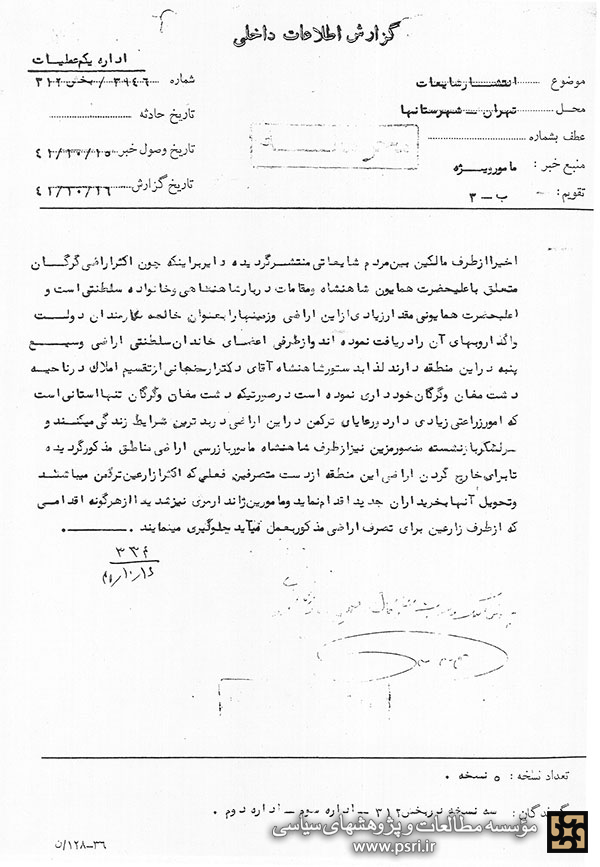 گزارش اطلاعات داخلی
اداره یکم عملیات
موضوع انتشار شایعات
شماره ۳۹۴۶ / بخش ۳۱۲
محل تهران – شهرستانها
تاریخ حادثه
عطف بشماره
منبع خبر : مامور ویژه
تاریخ وصول خبر ۴۱/۱۰/۱۵
تقویم : ب – ۳
تاریخ گزارش ۴۱/۱۰/۱۶
اخیرا از طرف مالکین بین مردم شایعاتی منتشر گردیده دایر براینکه چون اکثر اراضی گرگان
متعلق باعلیحضرت همایون شاهنشاه ومقامات دربار شاهنشاهی وخانواده سلطنتی است و
اعلیحضرت همایونی مقدار زیادی از این اراضی وزمینها را بعنوان خالصه بکارمندان دولت
واگذار وبهای آن را دریافت نموده اند وازطرفی اعضای خاندان سلطنتی اراضی وسیع
پنبه در این منطقه دارند لذا بدستور شاهنشاه آقای دکتر ارسنجانی از تقسیم املاک در ناحیه
دشت مغان وگرگان خود داری نموده است در صورتیکه دشت مغان وگرگان تنها استانی است
که امور زراعتی زیادی دارد ورعایای ترکمن در این اراضی در بدترین شرایط زندگی میکنند و
سرلشگر بازنشسته منصور مزین نیز از طرف شاهنشاه مامور بازرسی اراضی مناطق مذکور گردیده
تا برای خارج کردن اراضی این منطقه از دست متصرفین فعلی که اکثر زارعین ترکمن میباشند
وتحویل آنها بخریداران جدید اقدام نماید ومامورین ژاندارمری نیز شدیدا از هرگونه اقدامی
که از طرف زارعین برای تصرف اراضی مذکور بعمل میآید جلوگیری مینمایند .
۳۳۶
۴۱/۱۰/۱۶
تعداد نسخه : ۵ نسخه .
گیرندگان : سه نسخه در بخش ۳۱۲ – اداره سوم – اداره دوم .
مؤسسه مطالعات و پژوهشهای سیاسی
www.psri.ir
۳۶–۱۲۸/ن